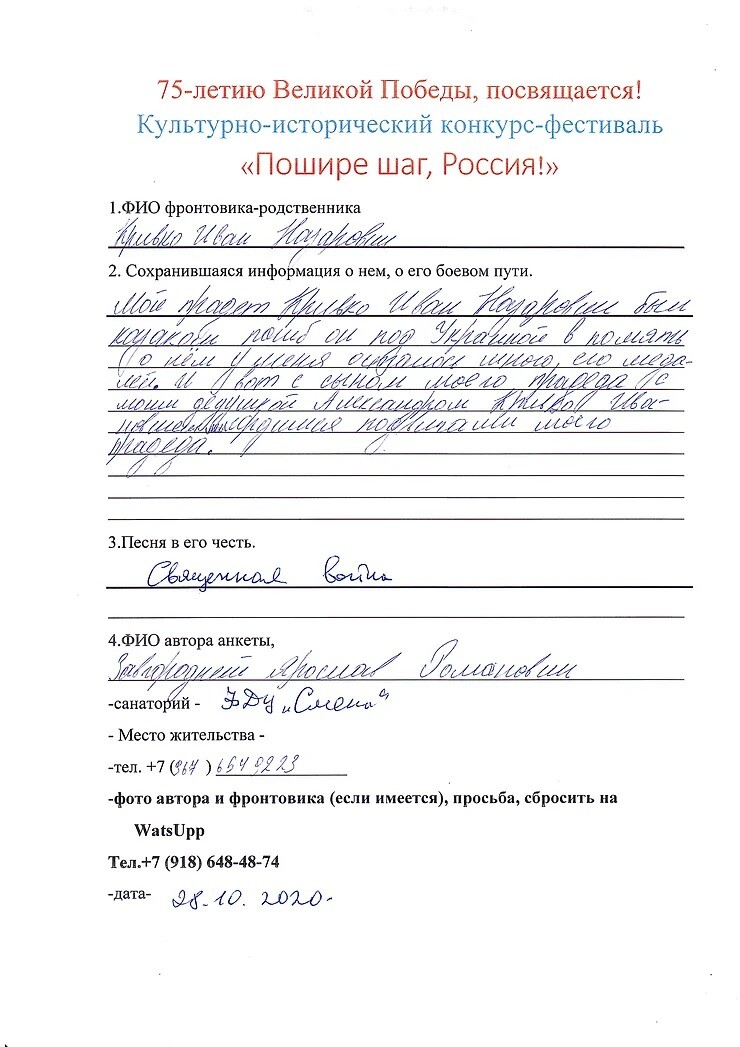 75-летию Великой Победы, посвящается!
Культурно-исторический конкурс-фестиваль
«Пошире шаг, Россия!»
1.ФИО фронтовика-родственника
Кривко Иван Назарович
2. Сохранившаяся информация о нем, о его боевом пути.
Мой прадет Кривко Иван Назарович был
казаком погиб он под Украиной в помять
о нём у меня осталось много, его меда-
лей. И вот с сыном моего прадеда с
моим дедушкой Александром Кривко Ива-
новичем гордимся подвигами моего
прадеда.
3.Песня в его честь.
Священная война
4.ФИО автора анкеты,
Завгородний Ярослав Романович
-санаторий - ЭДЦ „Смена"
- Место жительства -
-тел. +7 (964 ) 6549223
-фото автора и фронтовика (если имеется), просьба, сбросить на
WatsUpp
Тел.+7 (918) 648-48-74
-дата- 28.10. 2020.